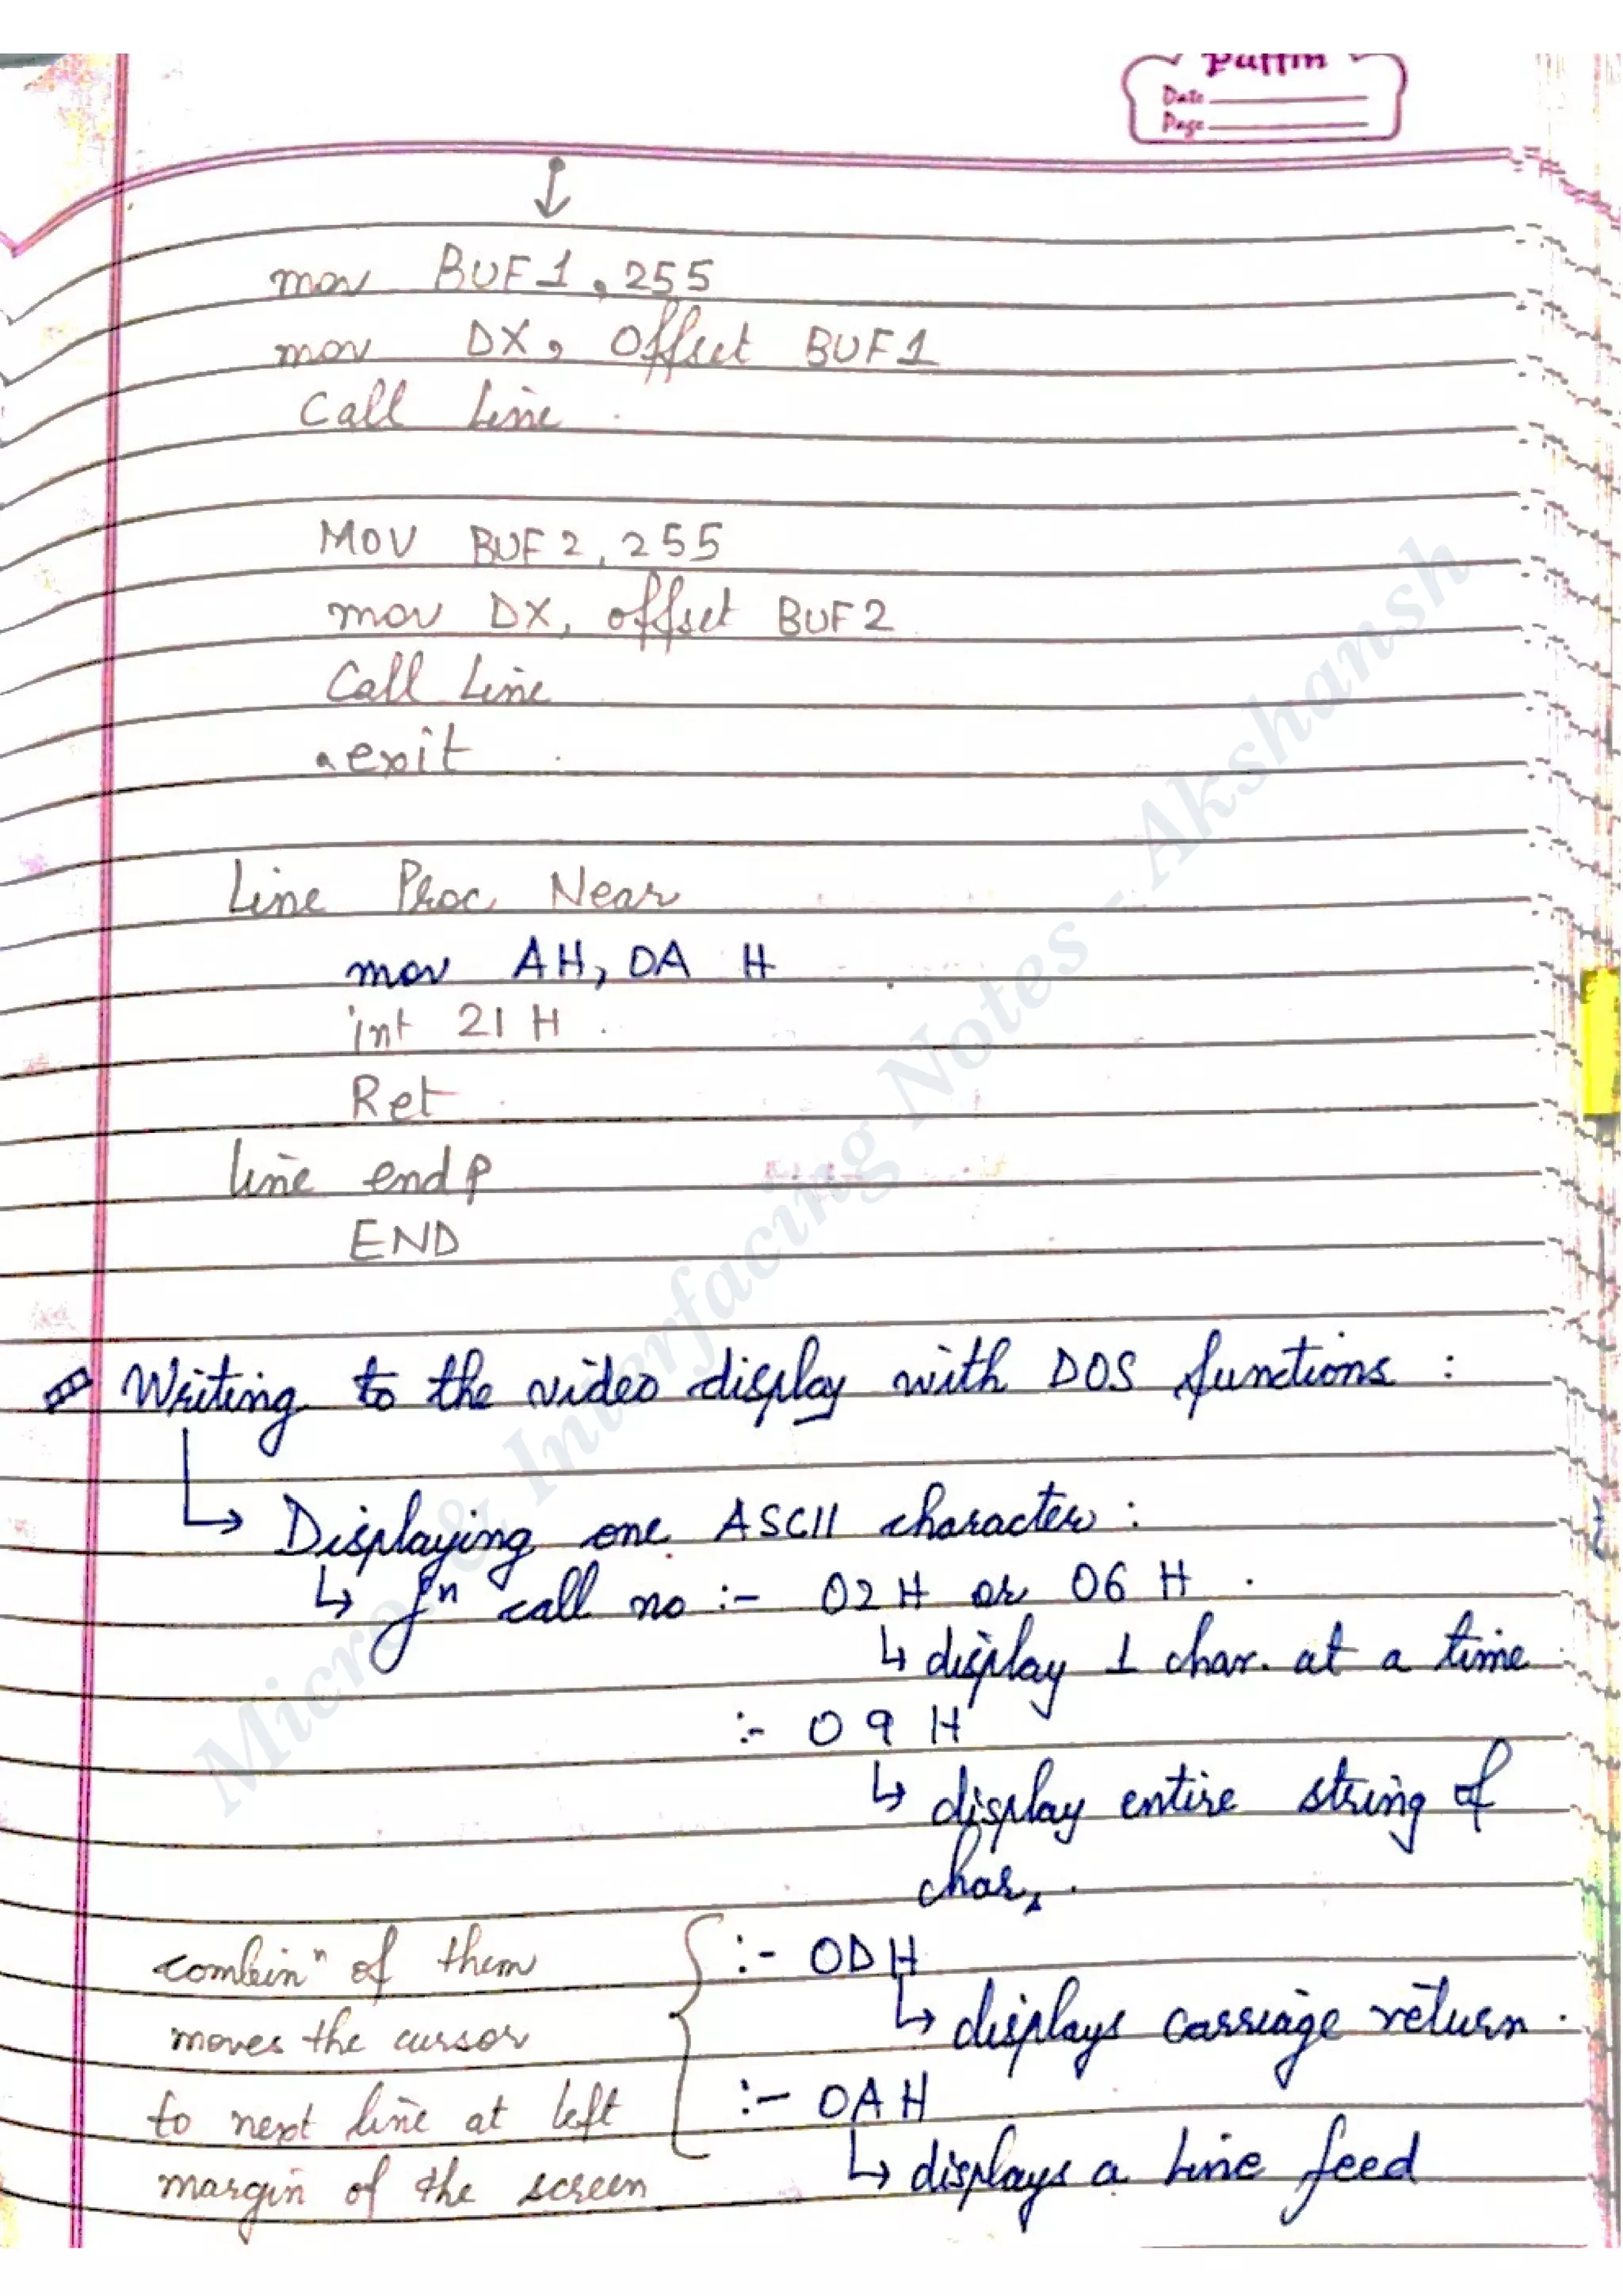 Puffin
Date
Page
↓
mov BUF1, 255
mov DX, offset BUF1
Call Line
MOV BUF2, 255
mov DX, offset BUF2
Call Line
.exit
Line Proc Near
mov AH, 0A H
int 21 H
Ret
line endp
END
Writing to the video display with DOS functions :
↳ Displaying one ASCII character :
↳ fⁿ call no :- 02H or 06 H .
↳ display 1 char. at a time
:- 09 H
↳ display entire string of
char.
combinⁿ of them
moves the cursor
to next line at left
margin of the screen
:- 0DH
↳ displays carriage return .
:- 0AH
↳ displays a line feed
Micro & Interfacing Notes - Akshansh